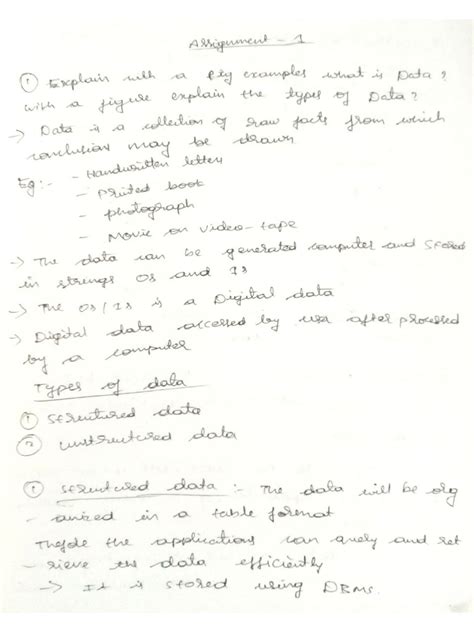 Assignment - 1
① Explain with a few examples what is Data?
with a figure explain the types of Data?
→ Data is a collection of raw facts from which
conclusion may be drawn
Eg:- - Handwritten letters
- Printed book
- photograph
- Movie on video-tape
→ The data can be generated computer and stored
in strings 0s and 1s
→ The 0s/1s is a Digital data
→ Digital data accessed by user after processed
by a computer
Types of data
① structured data
② unstructured data
① structured data :- The data will be org
- anized in a table format
the applications can query and ret
- rieve the data efficiently
→ It is stored using DBMS.